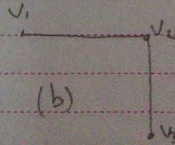 V₁
V₂
(b)
V₃